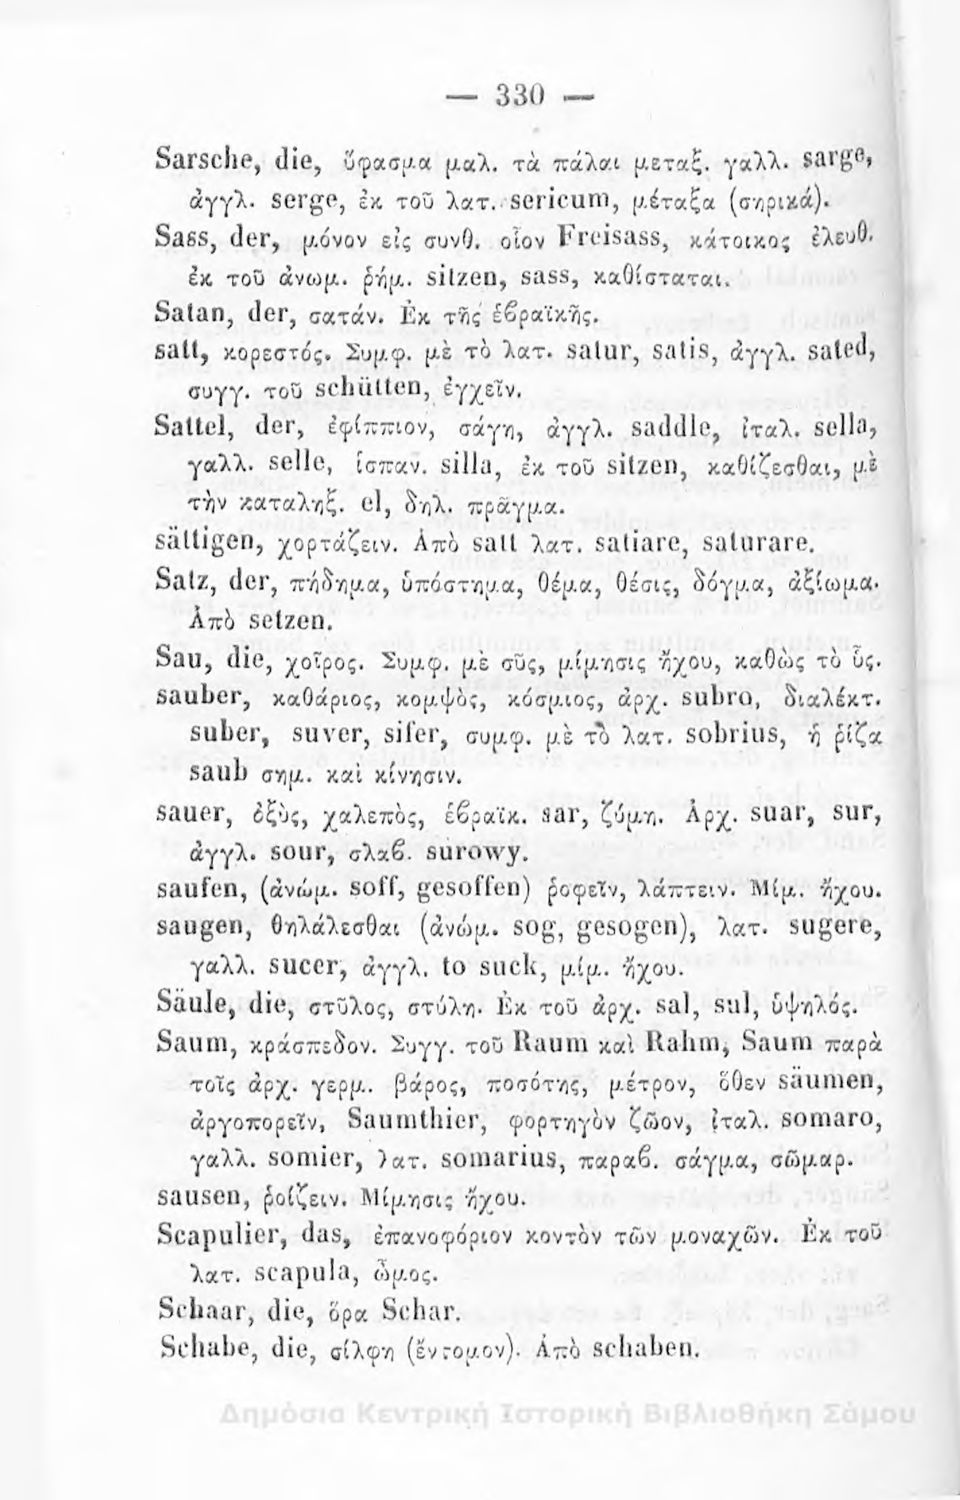 — 330 —
Sarsche, die, ὕφασμα μαλ. τὰ πάλαι μεταξ. γαλλ. sarge,
ἀγγλ. serge, ἐκ τοῦ λατ. sericum, μέταξα (σηρικά).
Sass, der, μόνον εἰς συνθ. οἷον Freisass, κάτοικος ἐλευθ.
ἐκ τοῦ ἀνωμ. ῥήμ. sitzen, sass, καθίσταται.
Satan, der, σατάν. Ἐκ τῆς ἑβραϊκῆς.
satt, κορεστός. Συμφ. μὲ τὸ λατ. satur, satis, ἀγγλ. sated,
συγγ. τοῦ schütten, ἐγχεῖν.
Sattel, der, ἐφίππιον, σάγη, ἀγγλ. saddle, ἰταλ. sella,
γαλλ. selle, ἱσπαν. silla, ἐκ τοῦ sitzen, καθίζεσθαι, μὲ
τὴν καταληξ. el, δηλ. πρᾶγμα.
sättigen, χορτάζειν. Ἀπὸ satt λατ. satiare, saturare.
Satz, der, πήδημα, ὑπόστημα, θέμα, θέσις, δόγμα, ἀξίωμα.
Ἀπὸ setzen.
Sau, die, χοῖρος. Συμφ. μὲ σῦς, μίμησις ἤχου, καθὼς τὸ ὗς.
sauber, καθάριος, κομψὸς, κόσμιος, ἀρχ. subro, διαλέκτ.
suber, suver, sifer, συμφ. μὲ τὸ λατ. sobrius, ἡ ῥίζα
saub σημ. καὶ κίνησιν.
sauer, ὀξὺς, χαλεπὸς, ἑβραϊκ. sar, ζύμη. Ἀρχ. suar, sur,
ἀγγλ. sour, σλαβ. surowy.
saufen, (ἀνώμ. soff, gesoffen) ῥοφεῖν, λάπτειν. Μίμ. ἤχου.
saugen, θηλάλεσθαι (ἀνώμ. sog, gesogen), λατ. sugere,
γαλλ. sucer, ἀγγλ. to suck, μίμ. ἤχου.
Säule, die, στῦλος, στύλη. Ἐκ τοῦ ἀρχ. sal, sul, ὑψηλός.
Saum, κράσπεδον. Συγγ. τοῦ Raum καὶ Rahm, Saum παρὰ
τοῖς ἀρχ. γερμ. βάρος, ποσότης, μέτρον, ὅθεν säumen,
ἀργοπορεῖν, Saumthier, φορτηγὸν ζῶον, ἰταλ. somaro,
γαλλ. somier, λατ. somarius, παραβ. σάγμα, σῶμαρ.
sausen, ῥοίζειν. Μίμησις ἤχου.
Scapulier, das, ἐπανοφόριον κοντὸν τῶν μοναχῶν. Ἐκ τοῦ
λατ. scapula, ὦμος.
Schaar, die, ὅρα Schar.
Schabe, die, σίλφη (ἔντομον). Ἀπὸ schaben.
Δημόσια Κεντρική Ιστορική Βιβλιοθήκη Σάμου